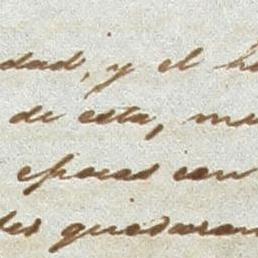 dad, y el
de esta, me
epocas con
quedaran